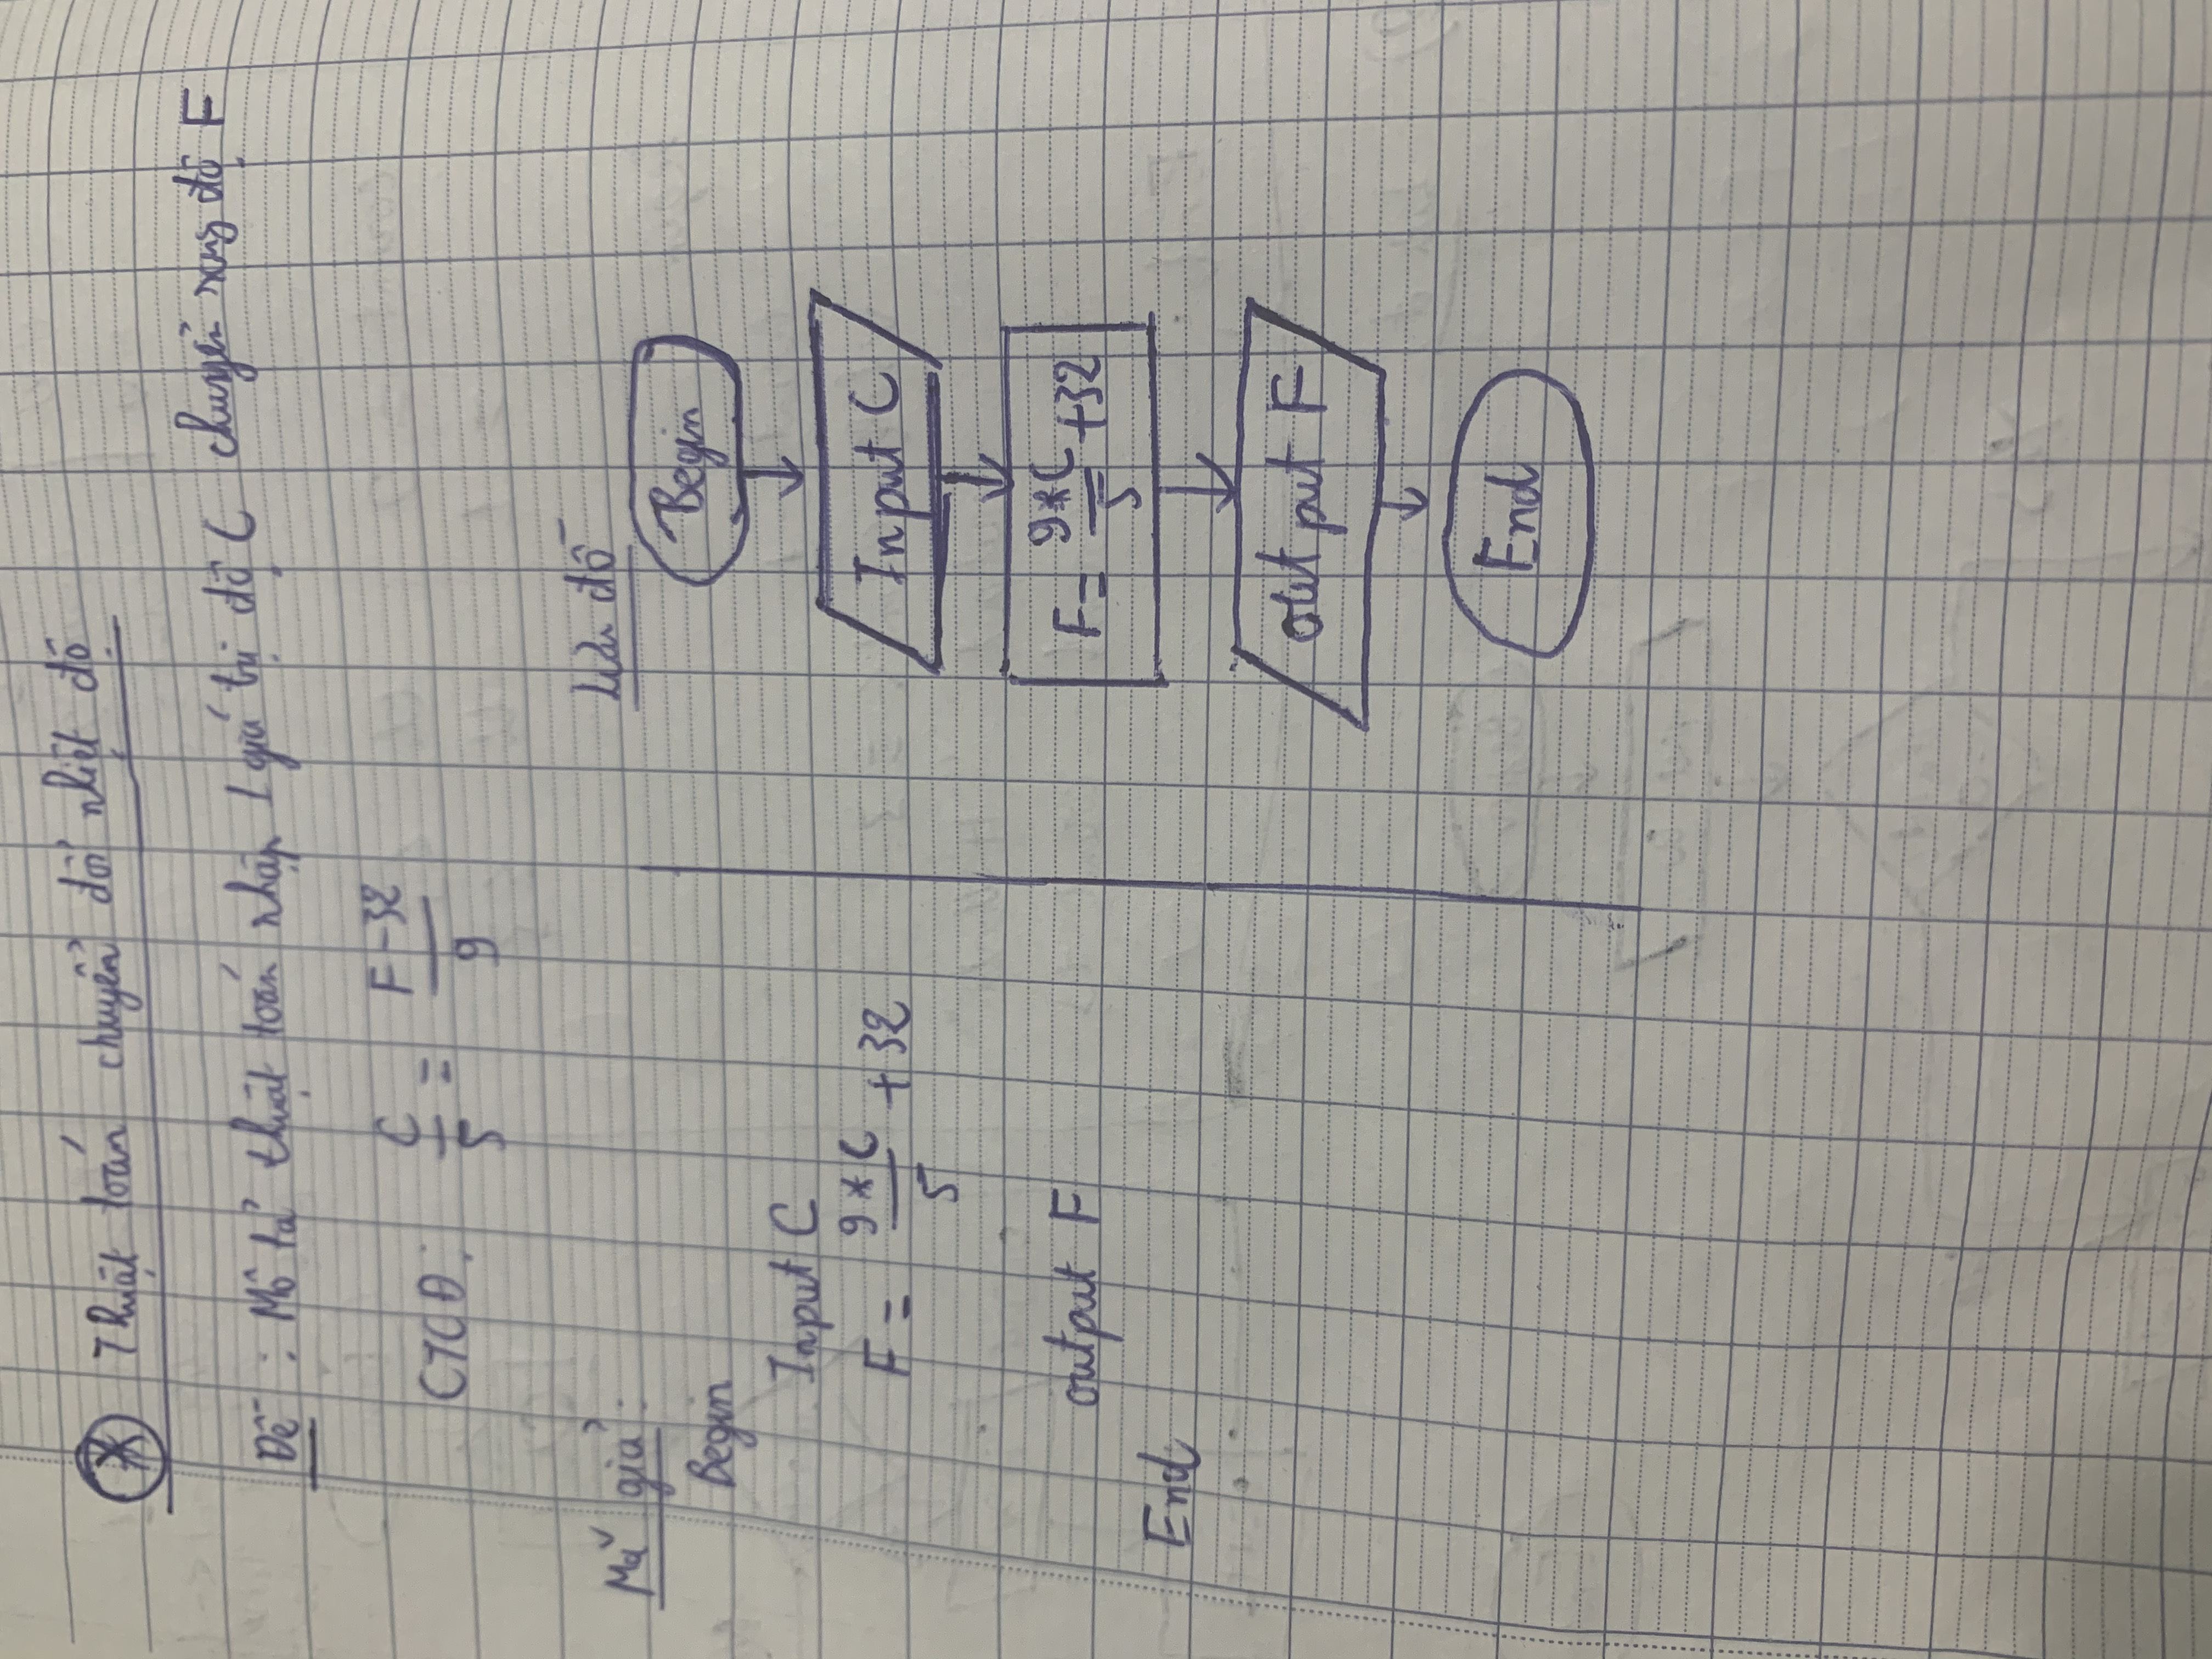 * Thuật toán chuyển đổi nhiệt độ
Đề: Mô tả thuật toán nhập 1 giá trị độ C chuyển sang độ F
CTCĐ: C/5 = F-32/9
Mã giả:
Begin
Input C
F = 9*C/5 + 32
output F
End
Lưu đồ
Begin
Input C
F = 9*C/5 + 32
output F
End